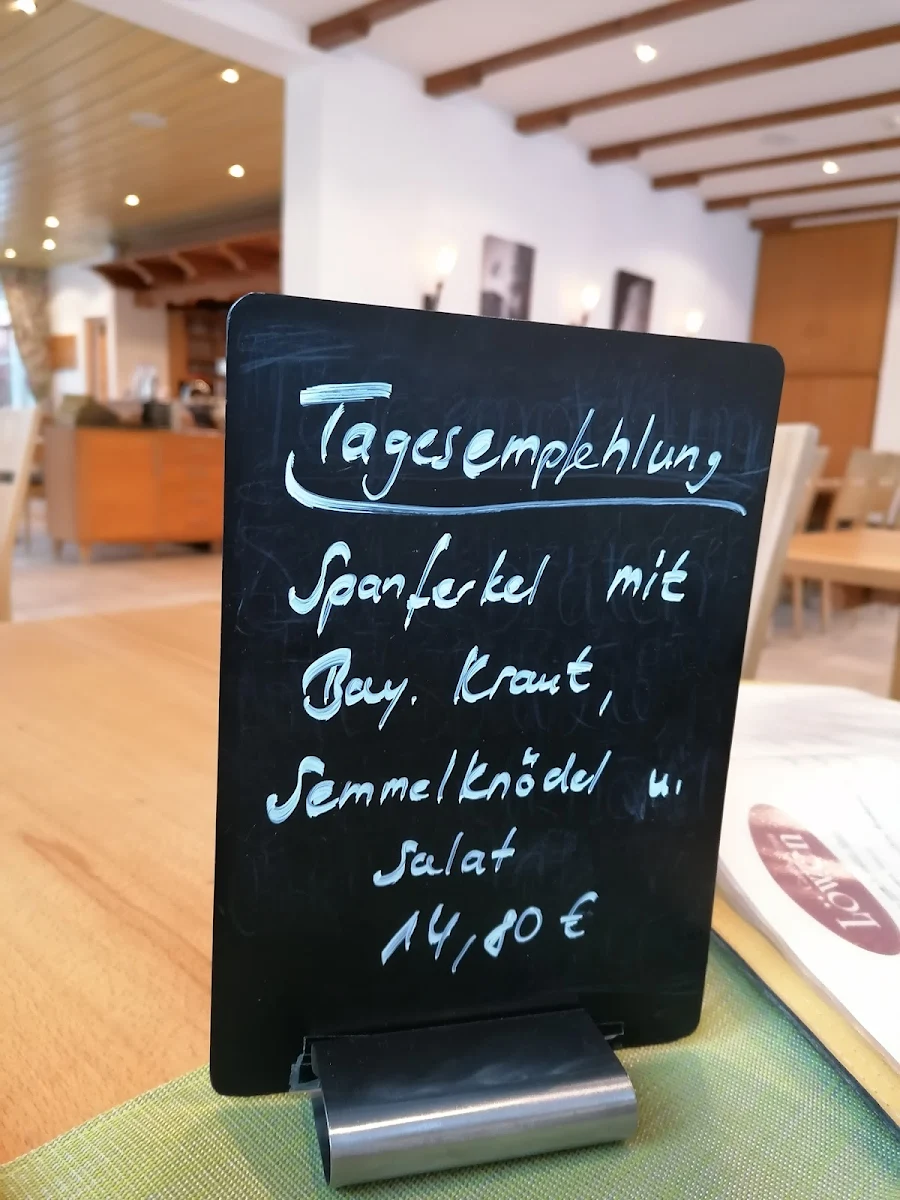 Tagesempfehlung
Spanferkel mit
Bay. Kraut,
Semmelknödel u.
Salat
14,80 €
Löwen